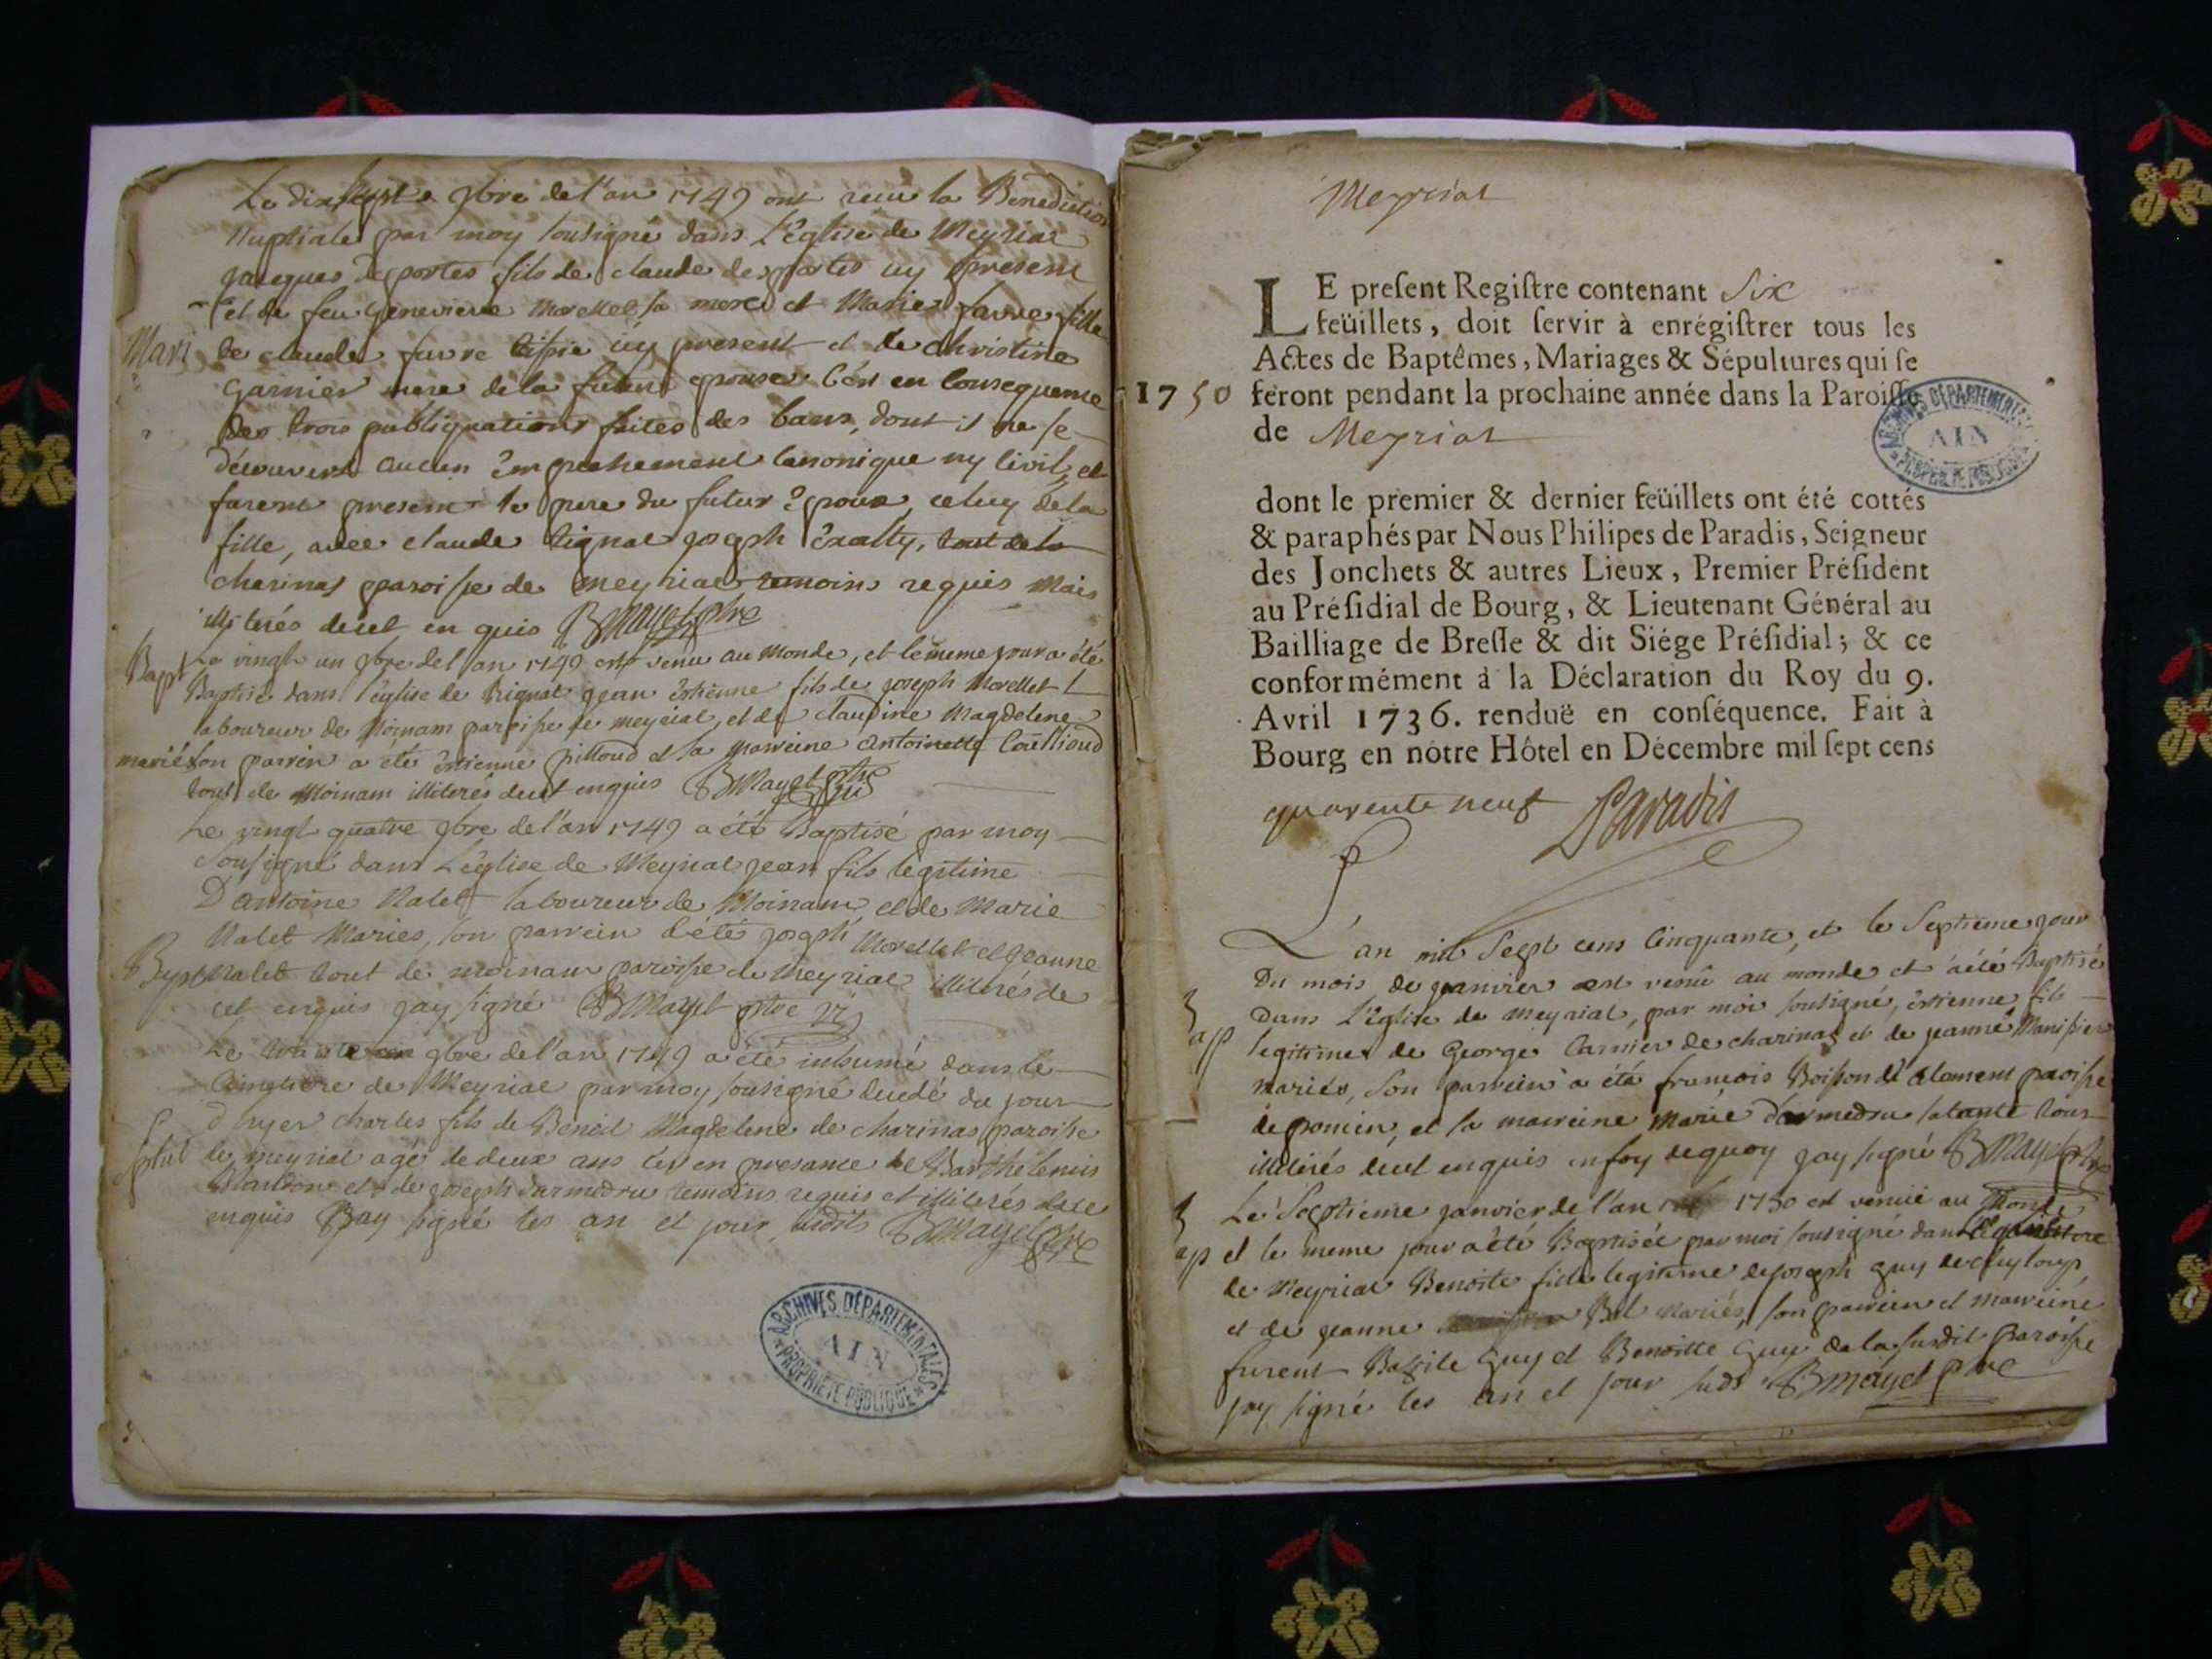 Le dixsept 9bre de l'an 1749 ont recu la Benediction
Nuptiale par moy sousigné dans L'église de Meyriat
jacques desportes fils de claude desportes icy present
et de feu Genevieve Morellet sa mere et Marie favre fille
Mari
de claude favre icy present et de christine
garnier mere de la future epouse C'est en Consequence
des trois publiquations faites des bans, dont il ne se
découvert aucun Empechement Canonique ny Civil, et
furent present le pere du futur Epoux, celuy de la
fille, avec claude tignat joseph tout de
charinas paroisse de meyriat temoins requis Mais
illiterés de cet enquis BMayet ptre
Bapt
Le vingt un 9bre de l'an 1749 est venu au monde, et le meme jour a été
Baptisé dans l'église de Rignat jean êstienne fils de joseph Morellet L
laboureur de Moinam paroisse de meyriat, et de claudine Magdelene
mariés son parrein a été êstienne pilloud et la marreine antoinette
tout de Moinam illiterés de cet enquis BMayet ptre
Le vingt quatre 9bre de l'an 1749 a été Baptisé par moy
sousigné dans L'église de Meyriat jean fils légitime
D'antoine Nalet laboureur de Moinam et de Marie
Nalet Maries, son parrein a été joseph Morellet et jeanne
Bapt
Nalet tout de moinam paroisse de Meyriat illiterés de
cet enquis jay signé BMayet ptre
Le 9bre de l'an 1749 a été inhumé dans le
Cimetiere de Meyriat par moy sousigné decedé du jour
d'hyer charles fils de Benoit Magdelene de charinas paroisse
Sepul
de meyriat agé de deux ans cet en presance de Barthelemis
et de joseph darmedru temoins requis et illiterés de ce
enquis Jay signé les an et jour, sudits BMayet ptre
ARCHIVES DÉPARTEMENTALES
AIN
PROPRIÉTÉ PUBLIQUE
Meyriat
LE preſent Regiſtre contenant Six
feüillets, doit ſervir à enrégiſtrer tous les
Actes de Baptêmes, Mariages & Sépultures qui ſe
1750 feront pendant la prochaine année dans la Paroiſſe
de Meyriat
ARCHIVES DÉPARTEMENTALES
AIN
PROPRIÉTÉ PUBLIQUE
dont le premier & dernier feüillets ont été cottés
& paraphés par Nous Philipes de Paradis, Seigneur
des Jonchets & autres Lieux, Premier Préſident
au Préſidial de Bourg, & Lieutenant Général au
Bailliage de Breſſe & dit Siége Préſidial; & ce
conformément à la Déclaration du Roy du 9.
Avril 1736. renduë en conſéquence. Fait à
Bourg en nôtre Hôtel en Décembre mil ſept cens
quarente neuf Paradis
L'an mil Sept cens Cinquante, et le Septieme jour
Du mois de janvier est venû au monde et a été Baptisé
Bap
Dans L'église de meyriat, par moi sousigné, êstienne fils
legitime de George Carnier de charinas et de jeanne
mariés, Son parrein a été francois Boisson paroisse
et la marreine marie darmedru sa tante tous
illiterés de cet enquis en foy de quoy jay signé BMayet ptre
Bap
Le Septieme janvier de l'an 1750 est venuë au Monde
et le meme jour a été Baptisée par moi sousigné dans
de Meyriat Benoite fille legitime de joseph guy
et de jeanne Bel Mariés, son parrein et marreine
furent Bazile Guy et Benoitte Guy de la susdit paroisse
jay signé les an et jour suds BMayet ptre